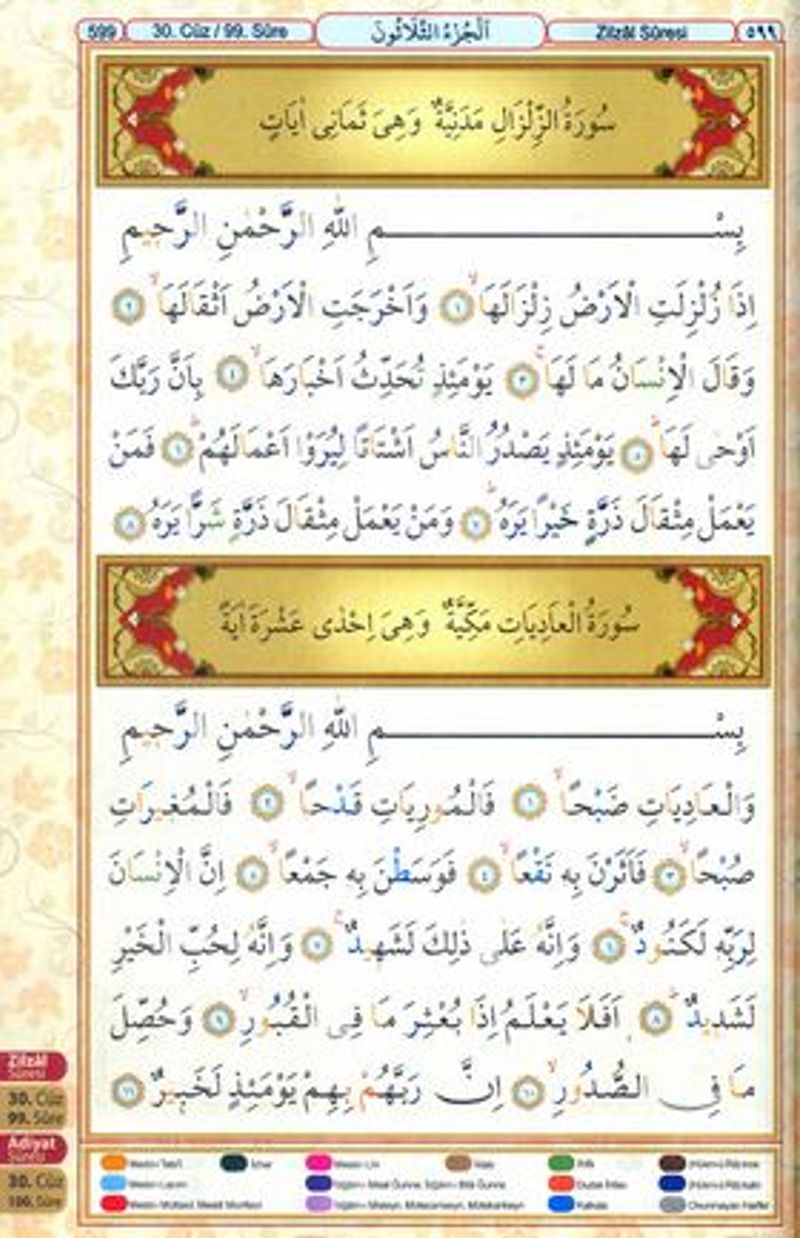 599 30. Cüz / 99. Sûre اَلْجُزْءُ الثَّلَاثُونَ Zilzâl Sûresi ٥٩٩
سُورَةُ الزِّلْزَالِ مَدَنِيَّةٌ وَهِىَ ثَمَانِى اٰيَاتٍ
بِسْمِ اللّٰهِ الرَّحْمٰنِ الرَّحٖيمِ
اِذَا زُلْزِلَتِ الْاَرْضُ زِلْزَالَهَاۙ ١ وَاَخْرَجَتِ الْاَرْضُ اَثْقَالَهَاۙ ٢
وَقَالَ الْاِنْسَانُ مَا لَهَاۚ ٣ يَوْمَئِذٍ تُحَدِّثُ اَخْبَارَهَاۙ ٤ بِاَنَّ رَبَّكَ
اَوْحٰى لَهَاۜ ٥ يَوْمَئِذٍ يَصْدُرُ النَّاسُ اَشْتَاتًا لِيُرَوْا اَعْمَالَهُمْۜ ٦ فَمَنْ
يَعْمَلْ مِثْقَالَ ذَرَّةٍ خَيْرًا يَرَهُۜ ٧ وَمَنْ يَعْمَلْ مِثْقَالَ ذَرَّةٍ شَرًّا يَرَهُ ٨
سُورَةُ الْعَادِيَاتِ مَكِّيَّةٌ وَهِىَ اِحْدٰى عَشْرَةَ اٰيَةً
بِسْمِ اللّٰهِ الرَّحْمٰنِ الرَّحٖيمِ
وَالْعَادِيَاتِ ضَبْحًاۙ ١ فَالْمُورِيَاتِ قَدْحًاۙ ٢ فَالْمُغٖيرَاتِ
صُبْحًاۙ ٣ فَاَثَرْنَ بِهٖ نَقْعًاۙ ٤ فَوَسَطْنَ بِهٖ جَمْعًاۙ ٥ اِنَّ الْاِنْسَانَ
لِرَبِّهٖ لَكَنُودٌۚ ٦ وَاِنَّهُ عَلٰى ذٰلِكَ لَشَهٖيدٌۚ ٧ وَاِنَّهُ لِحُبِّ الْخَيْرِ
لَشَدٖيدٌۜ ٨ اَفَلَا يَعْلَمُ اِذَا بُعْثِرَ مَا فِى الْقُبُورِۙ ٩ وَحُصِّلَ
مَا فِى الصُّدُورِۙ ١٠ اِنَّ رَبَّهُمْ بِهِمْ يَوْمَئِذٍ لَخَبٖيرٌ ١١
Zilzâl
Sûresi
30. Cüz
99. Sûre
Adiyat
Sûresi
30. Cüz
100. Sûre